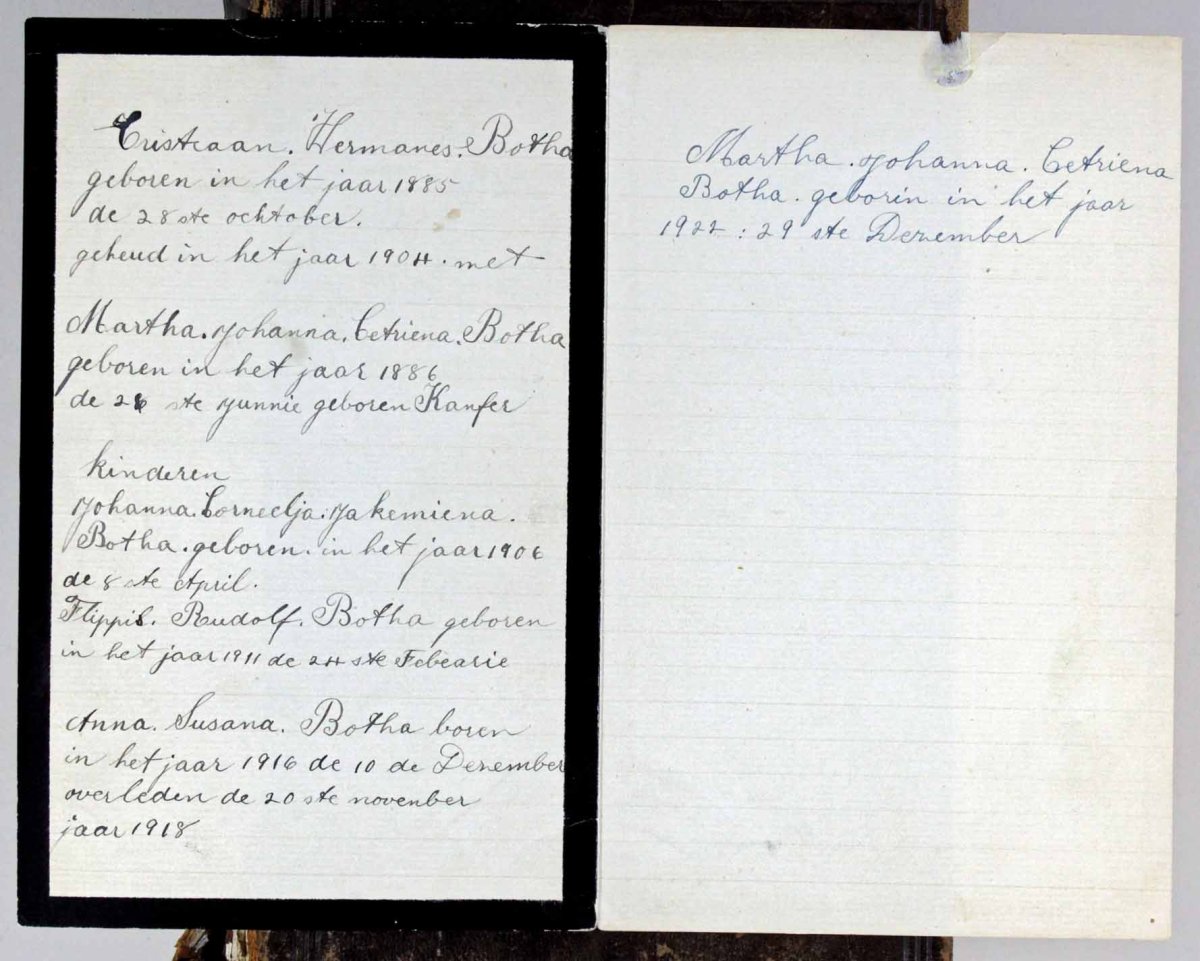 Cristiaan. Hermanes. Botha
geboren in het jaar 1885
de 28 ste ocktober.
geheud in het jaar 1904. met
Martha. Johanna. Cetriena. Botha
geboren in het jaar 1886
de ste Junnie geboren Kanfer
kinderen
Johanna. Corneelja. Jakemiena.
Botha. geboren. in het jaar 1906
de 8 ste April.
Flippis. Rudolf. Botha geboren
in het jaar 1911 de 24 ste Febearie
Anna. Susana. Botha boren
in het jaar 1916 de 10 de Dezember
overleden de 20 ste november
jaar 1918
Martha. Johanna. Cetriena
Botha. geborin in het jaar
1922 : 29 ste Dezember